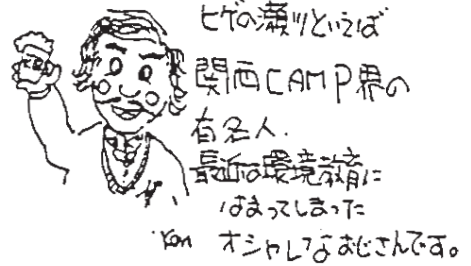 ヒゲの瀬川といえば
関西CAMP界の
有名人.
最近は環境教育に
はまってしまった
Ken オシャレなおじさんです。